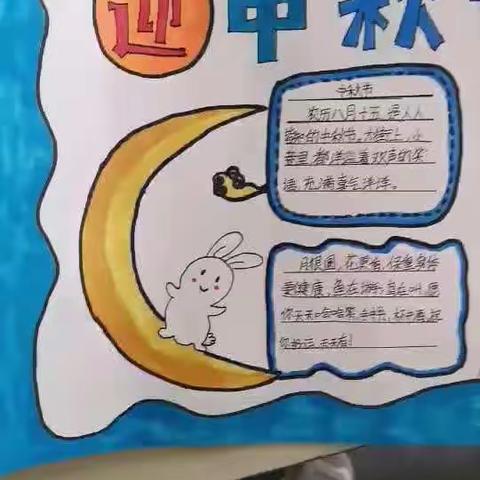 迎中秋
中秋节
农历八月十五,是人人
的中秋节。大街上,小
巷里,都洋溢着欢声的笑
语,充满喜气洋洋。
月很圆,花更香,保重身体
更健康,鱼在游,鸟在叫,愿
你天天哈哈笑,
你好运天天有!